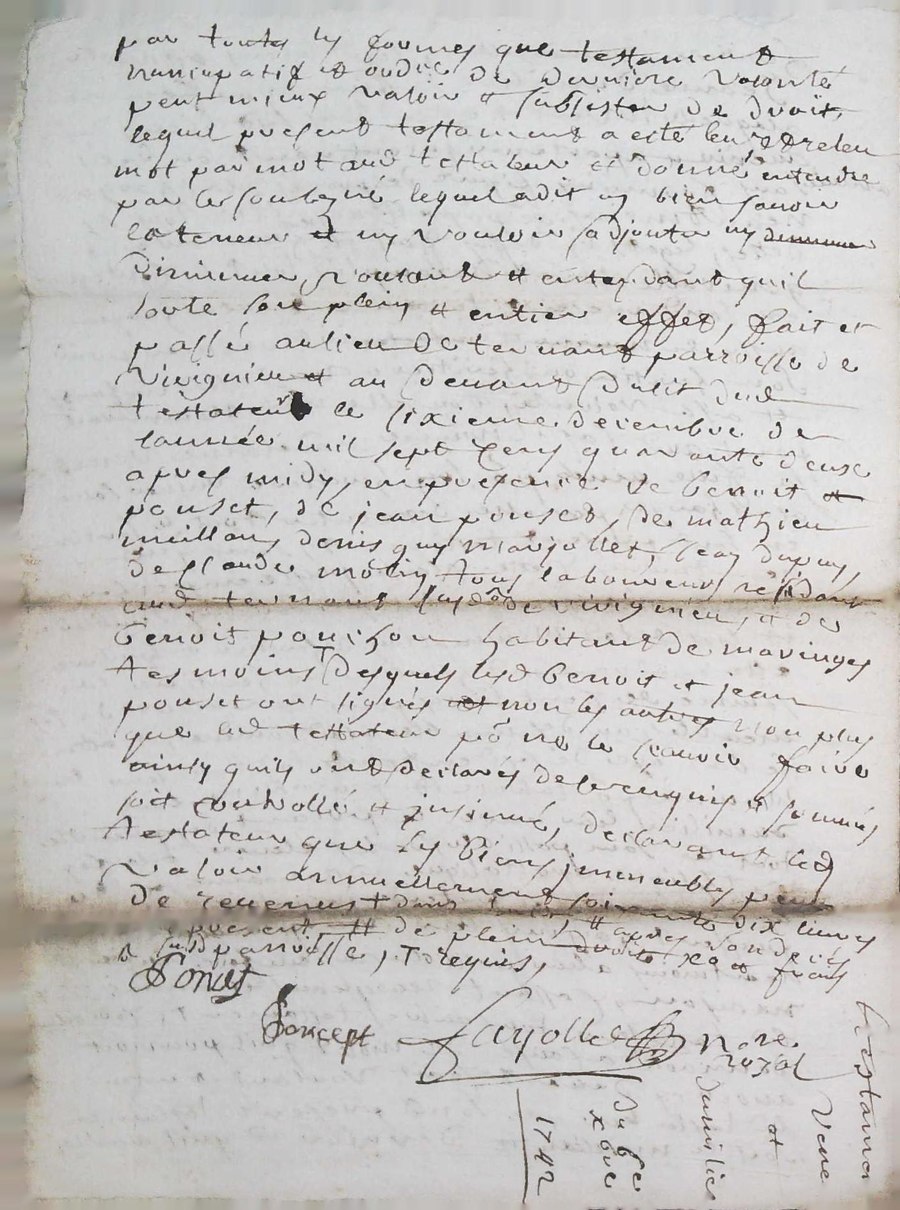 par toutes les formes que testament
nuncupatif et ordre de derniere volonté
peut mieux valoir et subsister de droit,
lequel present testament a esté leu et releu
mot par mot aud testateur et donné entendre
par le soubsigné lequel a dit y bien savoir
la teneur et ny vouloir adjouter ny
diminuer, voulant et entendant quil
sorte son plein et entier effet, fait et
passé au lieu de ternant parroisse de
Virignieu et au devant du lit dud
testateur le sixieme decembre de
lannée mil sept cens quarante deux
apres midy, en presence de benoit
ponset, de jean ponset, de mathieu
meilland, denis guy marjollet, jean dupuy,
de Claude molin, tous laboureurs residant
aud ternant susd de virignieu, et de
benoit ponchon habitant de maringes
tesmoins desquels lesd benoit et jean
ponset ont signés et non les autres non plus
que led testateur po ne le scavoir faire
ainsy quils ont declarés de ce enquis et sommés
soit controllé et insinué, declarant led
testateur que ses biens immeubles peu
valoir annuellement
de revenus dix livres
present, et apres son deces
susd parroisse, requis,
Poncet
Poncept Fayolle nore
royal
testamen
Vene
et
du 6e
xbre
1742